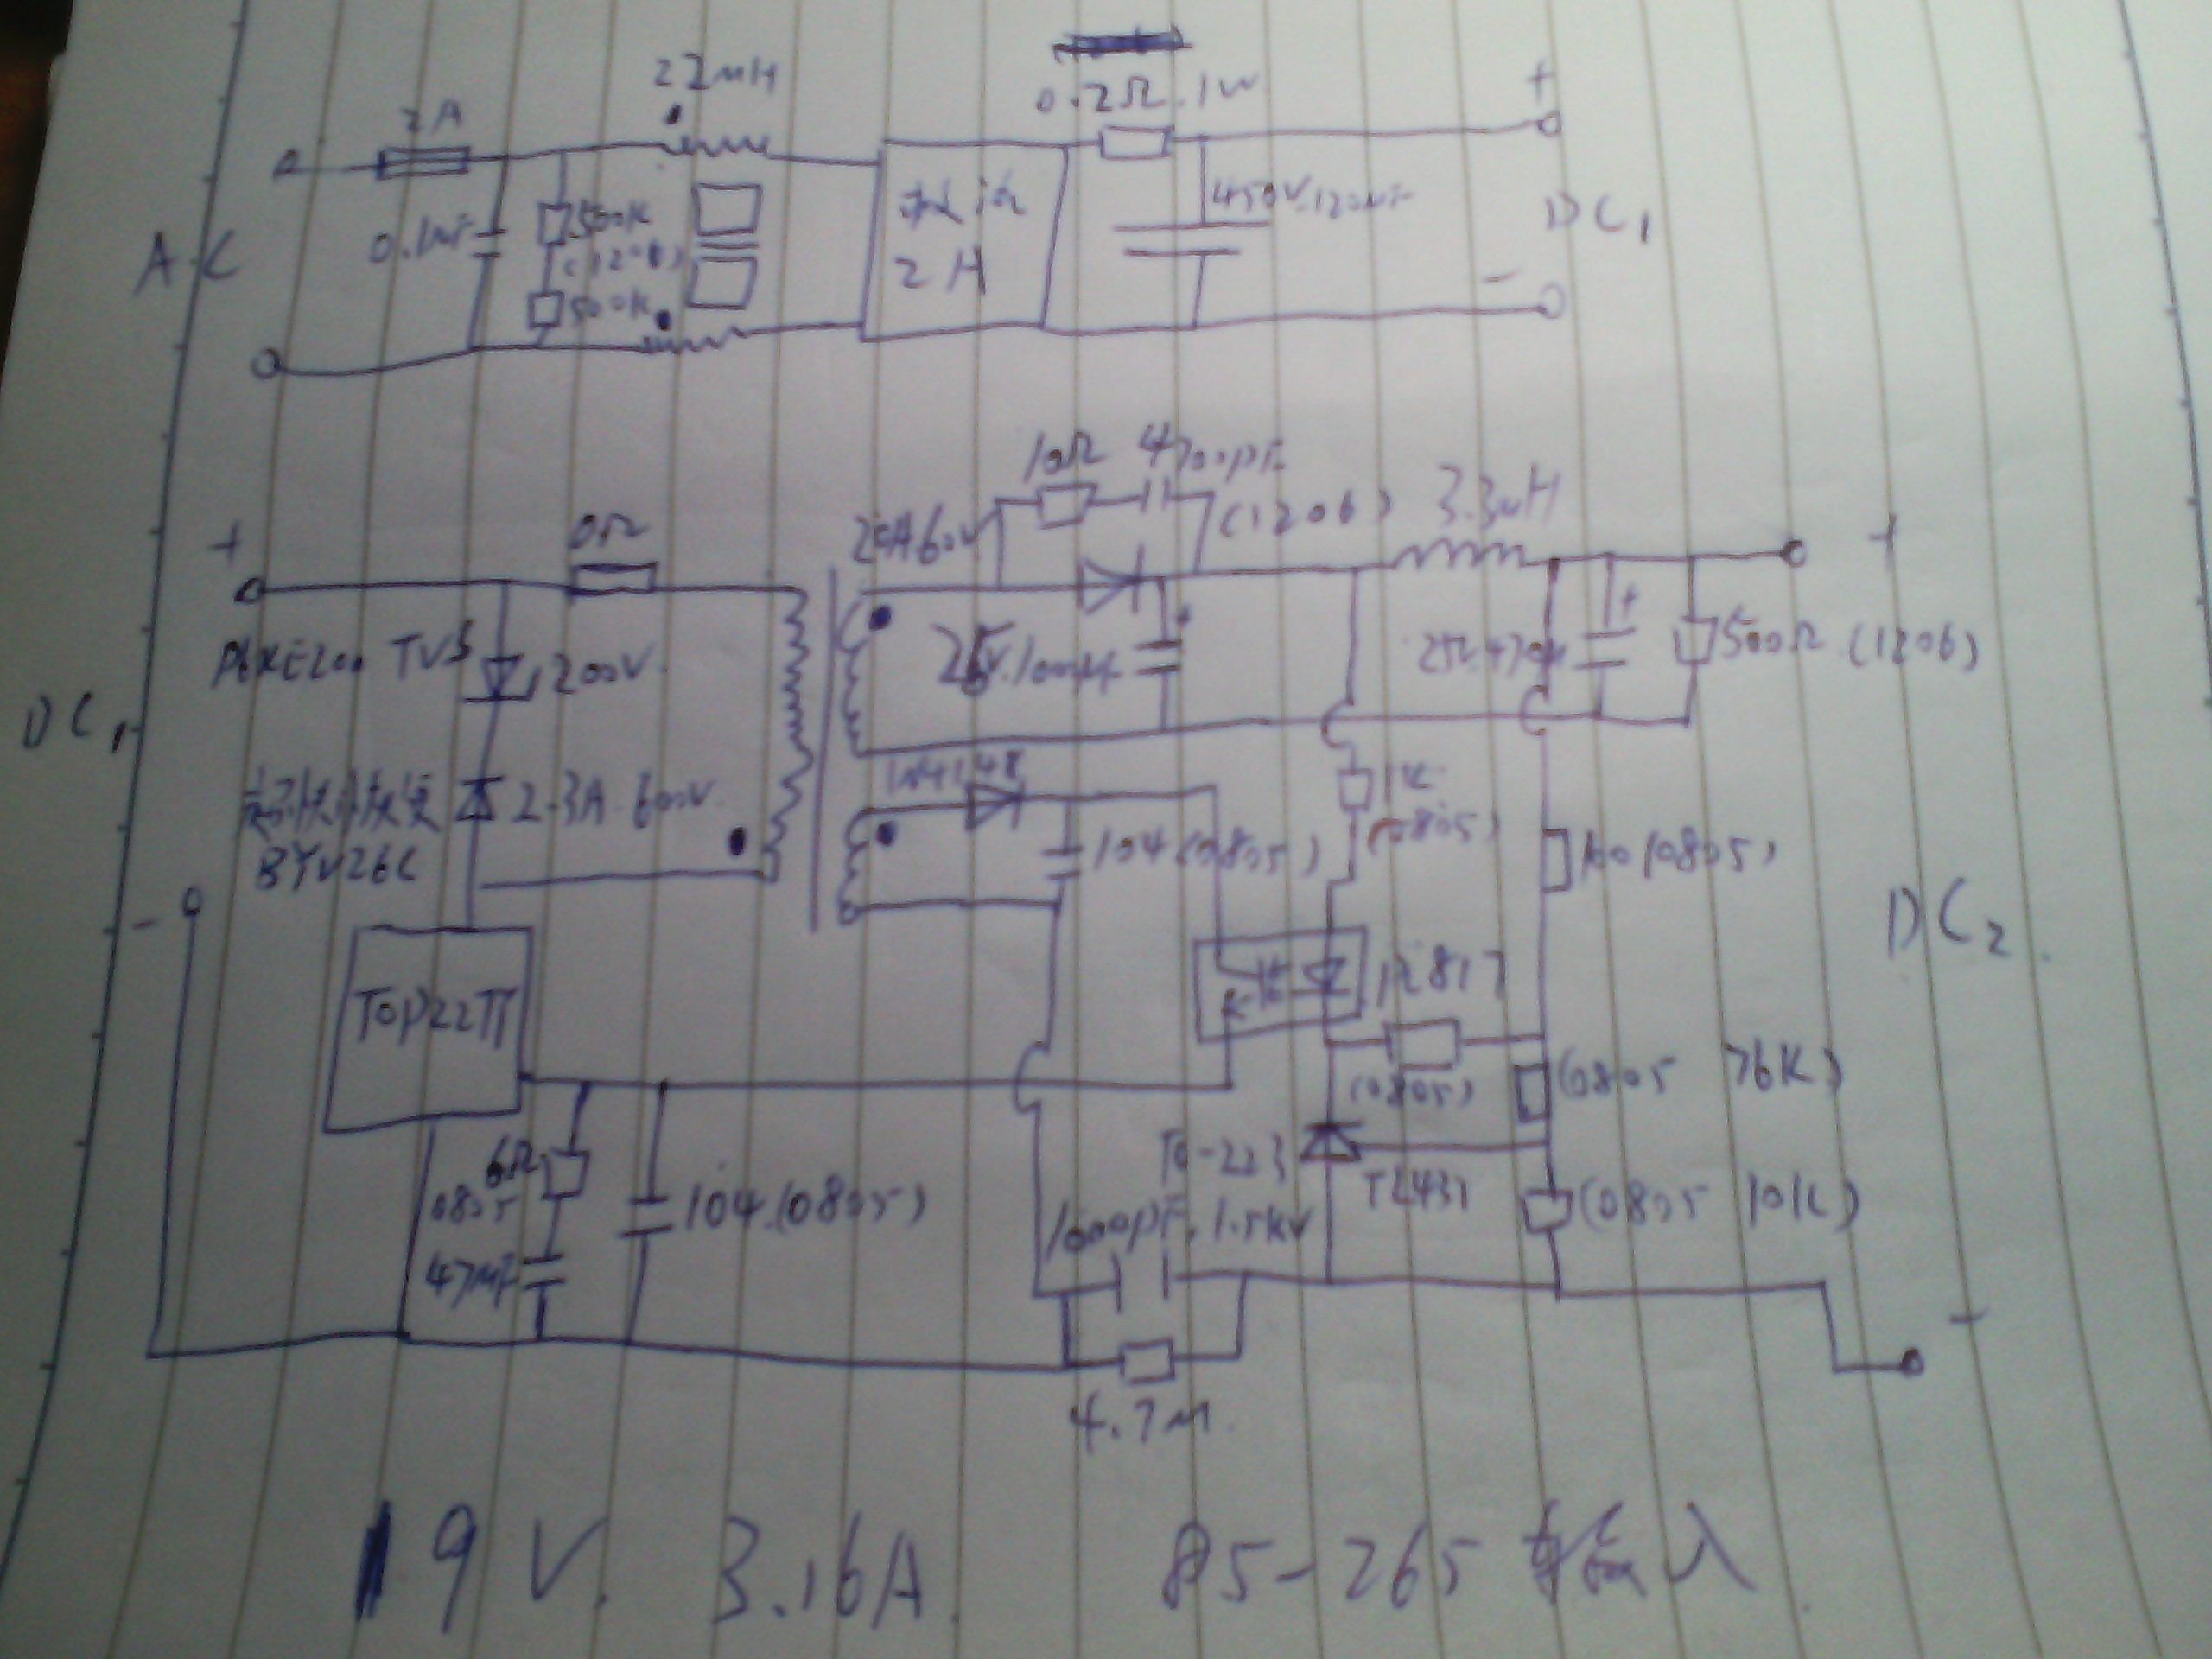 22mH
0.2Ω.1W
+
2A
AC
0.1uF
500K
(1206)
500K
2A
450V.120uF
DC1
-
10Ω 4700pF
(1206)
3.3uH
+
0Ω
20A60V
+
P6KE200 TVS
200V.
25V.1000uF
+
25V.470u
+
500Ω (1206)
DC1
1N4148
1K
(0805)
2-3A.600V
BYV26C
104(0805)
100(0805)
-
DC2.
TOP227Y
P817
(0805)
(0805 76K)
6Ω
0805
47uF
104.(0805)
TO-223
TL431
(0805 10K)
1000pF.1.5kV
-
4.7M.
19V. 3.16A. 85-265 输入